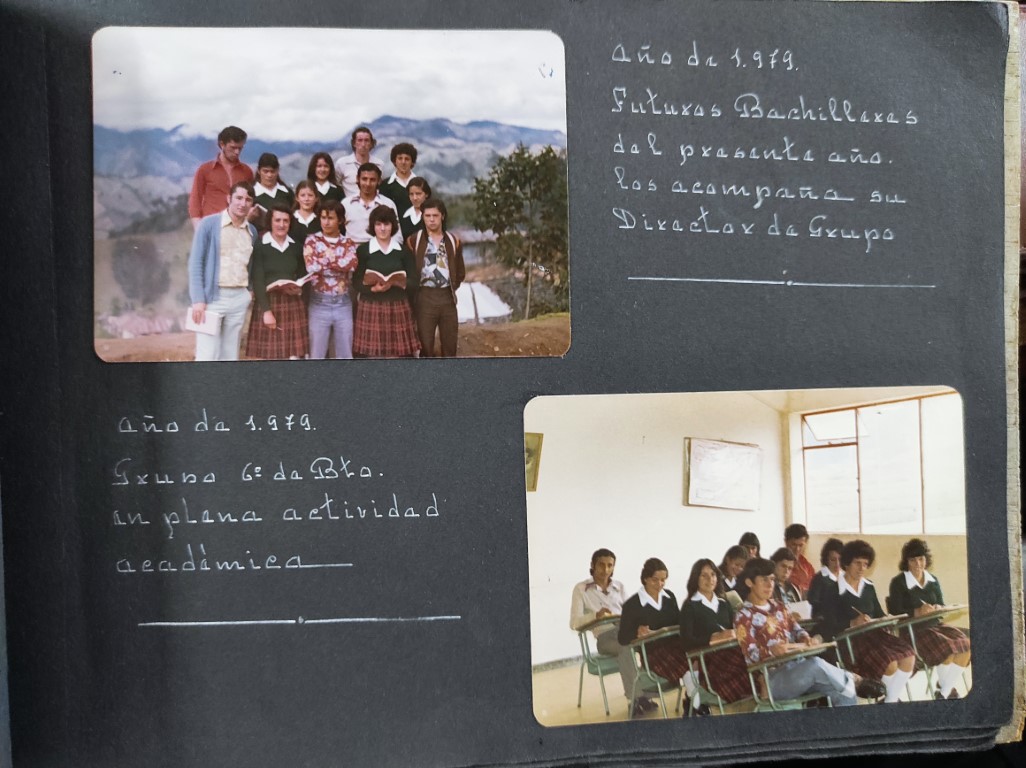 Año de 1.979.
Futuros Bachilleres
del presente año.
los acompaña su
Director de Grupo
Año de 1.979.
Grupo 6º de Bto.
en plena actividad
académica